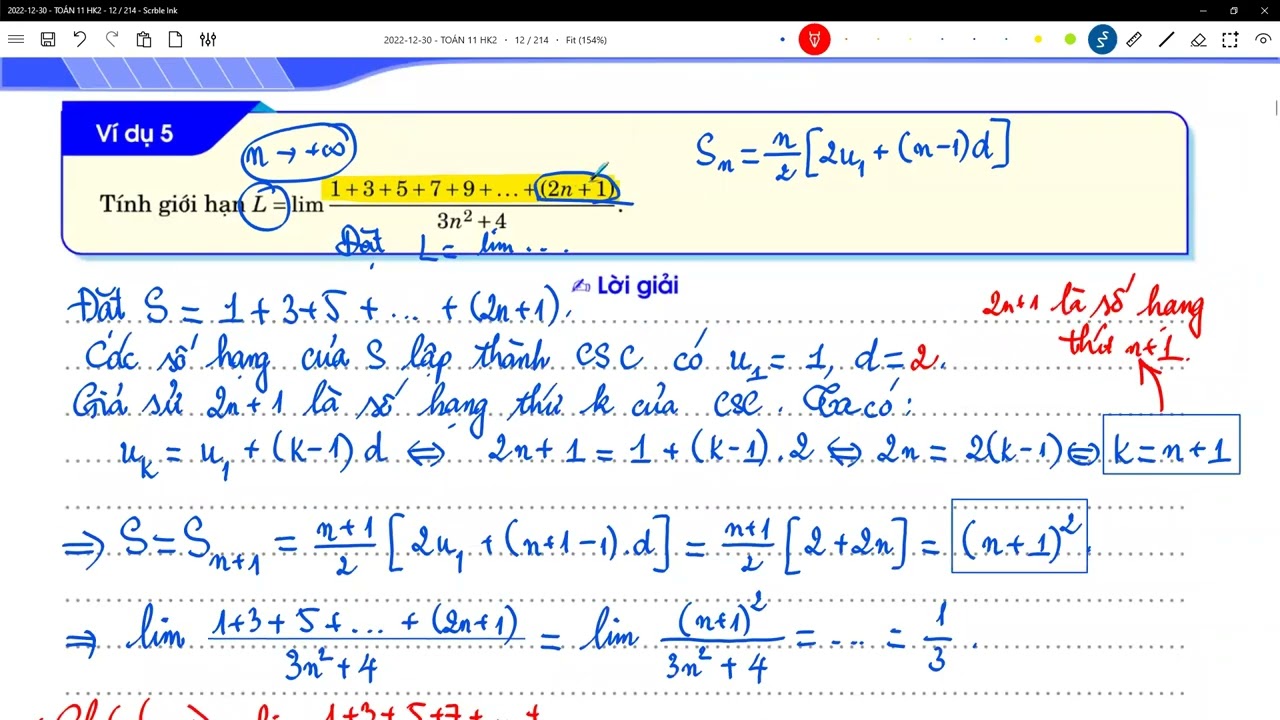 2022-12-30 - TOÁN 11 HK2 - 12 / 214 - Scrble Ink
2022-12-30 - TOÁN 11 HK2 • 12 / 214 • Fit (154%)
Ví dụ 5
n → +∞
S_n = n/2 [2u_1 + (n-1)d]
Tính giới hạn L = lim (1 + 3 + 5 + 7 + 9 + ... + (2n + 1))/(3n² + 4).
Đặt L = lim ...
Lời giải
Đặt S = 1 + 3 + 5 + ... + (2n+1).
2n+1 là số hạng
thứ n+1.
Các số hạng của S lập thành CSC có u_1 = 1, d = 2.
Giả sử 2n+1 là số hạng thứ k của CSC. Ta có:
u_k = u_1 + (k-1)d ⇔ 2n+1 = 1 + (k-1).2 ⇔ 2n = 2(k-1) ⇔ k = n+1
⇒ S = S_{n+1} = (n+1)/2 [2u_1 + (n+1-1).d] = (n+1)/2 [2+2n] = (n+1)².
⇒ lim (1+3+5+...+(2n+1))/(3n²+4) = lim (n+1)²/(3n²+4) = .... = 1/3.
lim 1+3+5+7+...+